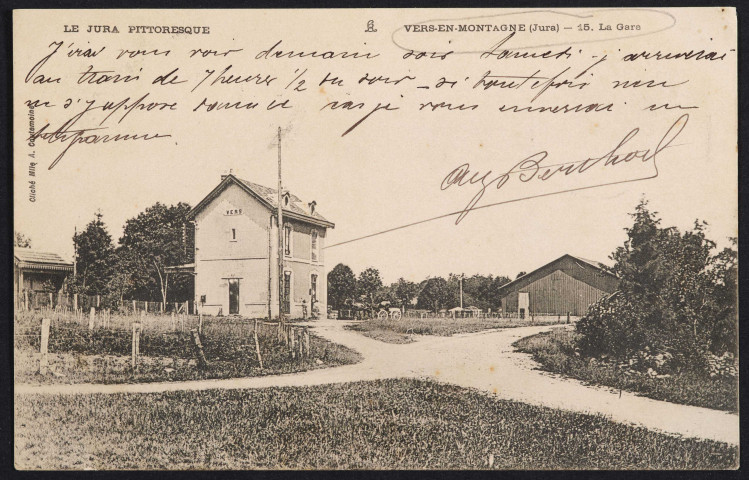 LE JURA PITTORESQUE
VERS-EN-MONTAGNE (Jura) — 15. La Gare
J'irai vous voir demain soir Samedi - j'arriverai
au train de 7 heures ½ du soir - si toutefois rien
ne s'y oppose dans ce cas je vous enverrai un
télégramme.
Aug Berthod
Cliché Mlle A. Coutemoine
VERS